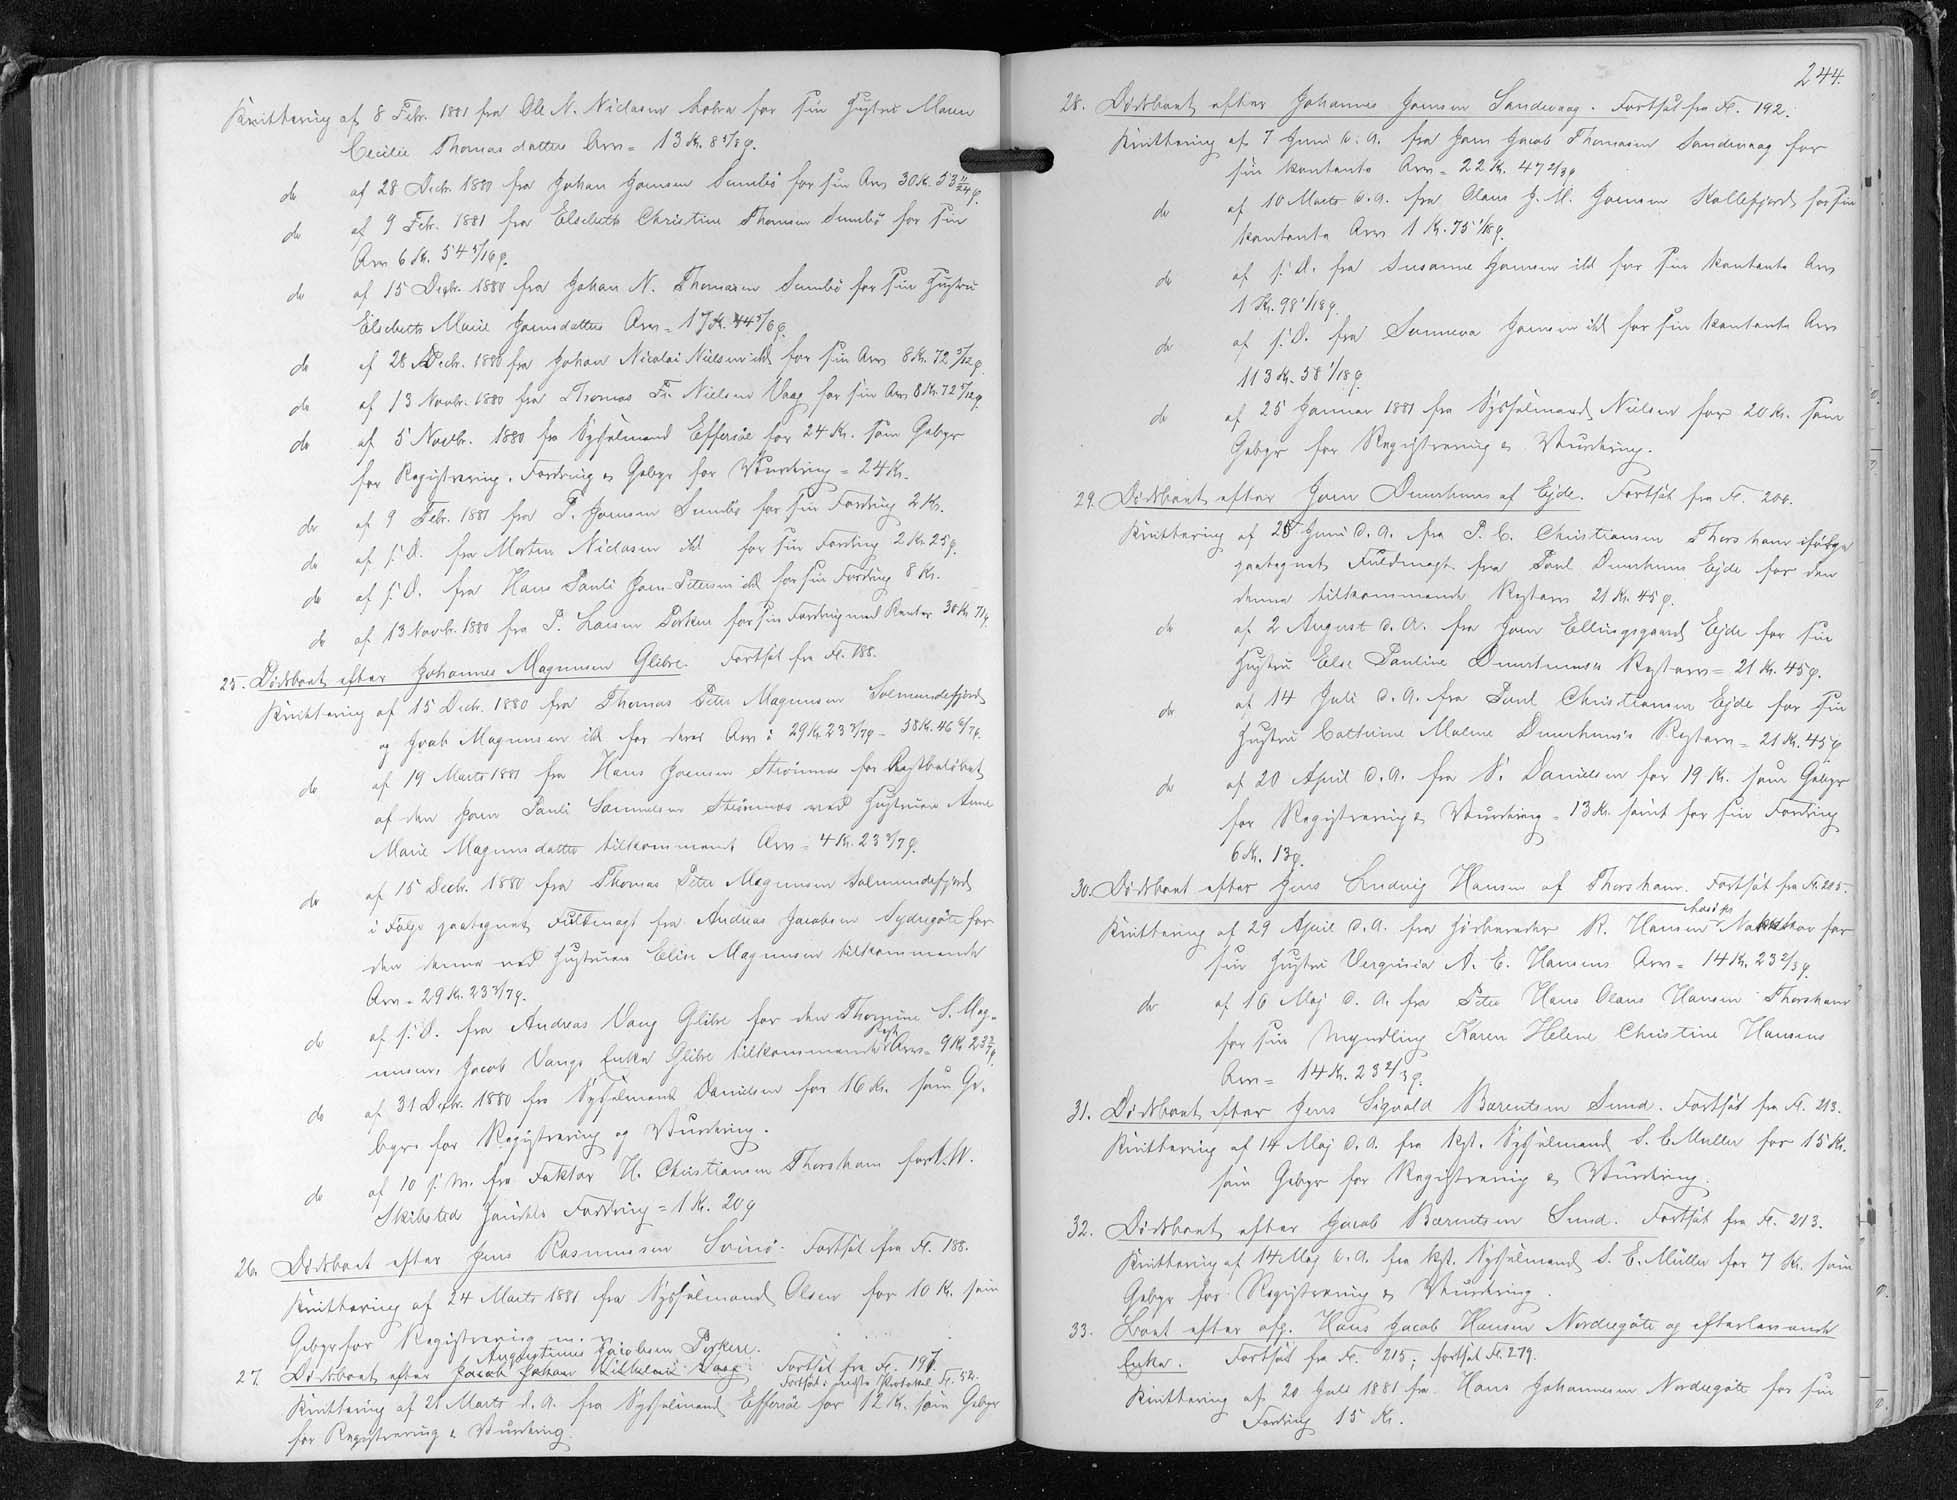 Kvittering af 8 Febr. 1881 fra Ole N. Niclasen for sin Hustru Maren
Cecilie Thomasdatters Arv = 13 Kr. 8 5/8 ø.
do af 28 Decbr. 1880 fra Johan Joensen Sumbø for sin Arv 30 Kr. 53 11/24 ø.
do af 9 Febr. 1881 fra Elsebeth Christine Thomsen Sumbø for sin
Arv 6 Kr. 54 5/16 ø.
do af 15 Decbr. 1880 fra Johan N. Thomasen Sumbø for sin Hustru
Elsebeth Marie Joensdatters Arv = 17 Kr. 44 5/6 ø.
do af 28 Decbr. 1880 fra Johan Nicolai Nielsen ibd for sin Arv 8 Kr. 72 5/12 ø.
do af 13 Novbr. 1880 fra Thomas Fr. Nielsen Vaag for sin Arv 8 Kr. 72 5/12 ø.
do af 5 Novbr. 1880 fra Sysselmand Effersøe for 24 Kr. som Gebyr
for Registrering, Fordring & Gebyr for Vurdering = 24 Kr.
do af 9 Febr. 1881 fra P. Joensen Sumbø for sin Fordring 2 Kr.
do af s. D. fra Morten Niclasen ibd for sin Fordring 2 Kr. 25 ø.
do af s. D. fra Hans Pauli Joen-Petersen ibd for sin Fordring 8 Kr.
do af 13 Novbr. 1880 fra P. Larsen Porkere for sin Fordring med Renter 38 Kr. 71 ø.
25. Dødsboet efter Johannes Magnusen Glibre. Fortsat fra Fl. 188.
Kvittering af 15 Decbr. 1880 fra Thomas Peter Magnusen Solmundefjord
og Jacob Magnusen ibd for deres Arv: 29 Kr. 23 3/7 ø = 58 Kr. 46 6/7 ø.
do af 19 Marts 1881 fra Hans Joensen Strømnæs for Restbeløbet
af den Joen Pauli Samuelsen Strømnæs ved Hustruen Anne
Marie Magnusdatter tilkommende Arv = 4 Kr. 23 3/7 ø.
do af 15 Decbr. 1880 fra Thomas Peter Magnusen Solmundefjord
i Følge paategnet Fuldmagt fra Andreas Jacobsen Sydregøte for
den denne ved Hustruen Elise Magnusen tilkommende
Arv = 29 Kr. 23 3/7 ø.
do af s. D. fra Andreas Vang Glibre for den Thomine S. Mag-
nusen, Jacob Vangs Enke Glibre tilkommende Rest Arv = 9 Kr. 23 3/7 ø.
do af 31 Decbr. 1880 fra Sysselmand Danielsen for 16 Kr. som Ge-
byr for Registrering og Vurdering.
do af 10 s. M. fra Faktor H. Christiansen Thorshavn for N. W.
Skibsted Handels Fordring = 1 Kr. 20 ø
26. Dødsboet efter Jens Rasmussen Svinø. Fortsat fra Fl. 188.
Kvittering af 24 Marts 1881 fra Sysselmand Olsen for 10 Kr. som
Gebyr for Registrering m. v.
Augustinus Jacobsen Porkere.
27. Dødsboet efter Jacob Johan Vilhelm Vaag. Fortsat fra Fl. 197.
Fortsat i næste Protokol Fl. 52.
Kvittering af 21 Marts d. A. fra Sysselmand Effersøe for 12 Kr. som Gebyr
for Registrering & Vurdering.
244.
28. Dødsboet efter Johannes Joensen Sandevaag. Fortsat fra Fl. 192.
Kvittering af 7 Juni d. A. fra Joen Jacob Thomasen Sandevaag for
sin kontante Arv = 22 Kr. 47 2/3 ø
do af 10 Marts d. A. fra Olaus J. M. Joensen Kollefjord for sin
kontante Arv 1 Kr. 75 1/18 ø.
do af s. D. fra Susanne Joensen ibd for sin kontante Arv
1 Kr. 98 1/18 ø.
do af s. D. fra Sunneva Joensen ibd for sin kontante Arv
113 Kr. 58 1/18 ø.
do af 25 Januar 1881 fra Sysselmand Nielsen for 20 Kr. som
Gebyr for Registrering & Vurdering.
29. Dødsboet efter Joen Duurhuus af Ejde. Fortsat fra Fl. 200.
Kvittering af 28 Juni d. A. fra P. C. Christiansen Thorshavn ifølge
paategnet Fuldmagt fra Poul Duurhuus Ejde for den
denne tilkommende Restarv 21 Kr. 45 ø.
do af 2 August d. A. fra Joen Ellingsgaard Ejde for sin
Hustru Else Pauline Duurhuus's Restarv = 21 Kr. 45 ø.
do af 14 Juli d. A. fra Poul Christiansen Ejde for sin
Hustru Cathrine Malene Duurhuus's Restarv = 21 Kr. 45 ø
do af 20 April d. A. fra S. Danielsen for 19 Kr. som Gebyr
for Registrering & Vurdering = 13 Kr. samt for sin Fordring
6 Kr. 13 ø.
30. Dødsboet efter Jens Ludvig Hansen af Thorshavn. Fortsat fra Fl. 205.
Kvittering af 29 April d. A. fra R. Hansen Nakskov for
sin Hustru Verginia A. E. Hansens Arv = 14 Kr. 23 2/3 ø.
do af 16 Maj d. A. fra Peter Hans Olaus Hansen Thorshavn
for sin Myndling Karen Helene Christine Hansens
Arv = 14 Kr. 23 2/3 ø.
31. Dødsboet efter Jens Sigvald Bærentsen Sund. Fortsat fra Fl. 213.
Kvittering af 14 Maj d. A. fra kst. Sysselmand S. E. Müller for 15 Kr.
som Gebyr for Registrering & Vurdering.
32. Dødsboet efter Jacob Bærentsen Sund. Fortsat fra Fl. 213.
Kvittering af 14 Maj d. A. fra kst. Sysselmand S. E. Müller for 7 Kr. som
Gebyr for Registrering & Vurdering.
33. Boet efter afg. Hans Jacob Hansen Nordregøte og efterlevende
Enke. Fortsat fra Fl. 215; fortsat Fl. 279.
Kvittering af 20 Juli 1881 fra Hans Johannesen Nordregøte for sin
Fordring 15 Kr.